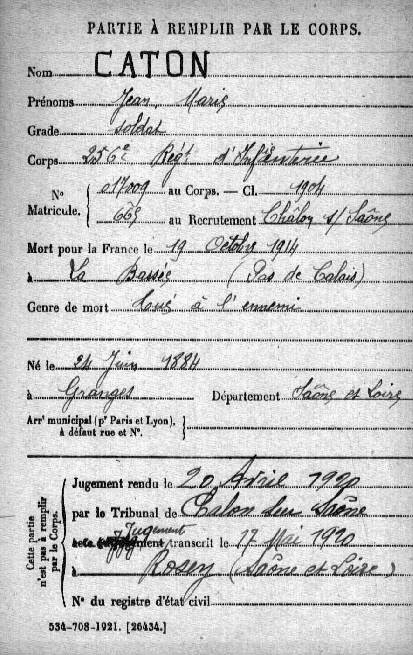 PARTIE À REMPLIR PAR LE CORPS.
Nom CATON
Prénoms Jean Marie
Grade soldat
Corps 256e Régt d'Infanterie
N° Matricule. { 017009 au Corps. — Cl. 1904
665 au Recrutement Châlon s/ Saône
Mort pour la France le 19 Octobre 1914
à La Bassée (Pas de Calais)
Genre de mort tué à l'ennemi
Né le 24 Juin 1884
à Granges Département Saône et Loire
Arrt municipal (pr Paris et Lyon),
à défaut rue et N°.
Cette partie
n'est pas à remplir
par le Corps.
Jugement rendu le 20 Avril 1920
par le Tribunal de Chalon sur Saône
Jugement
transcrit le 17 Mai 1920
à Rosey (Saône et Loire)
N° du registre d'état civil
534-708-1921. [26434.]